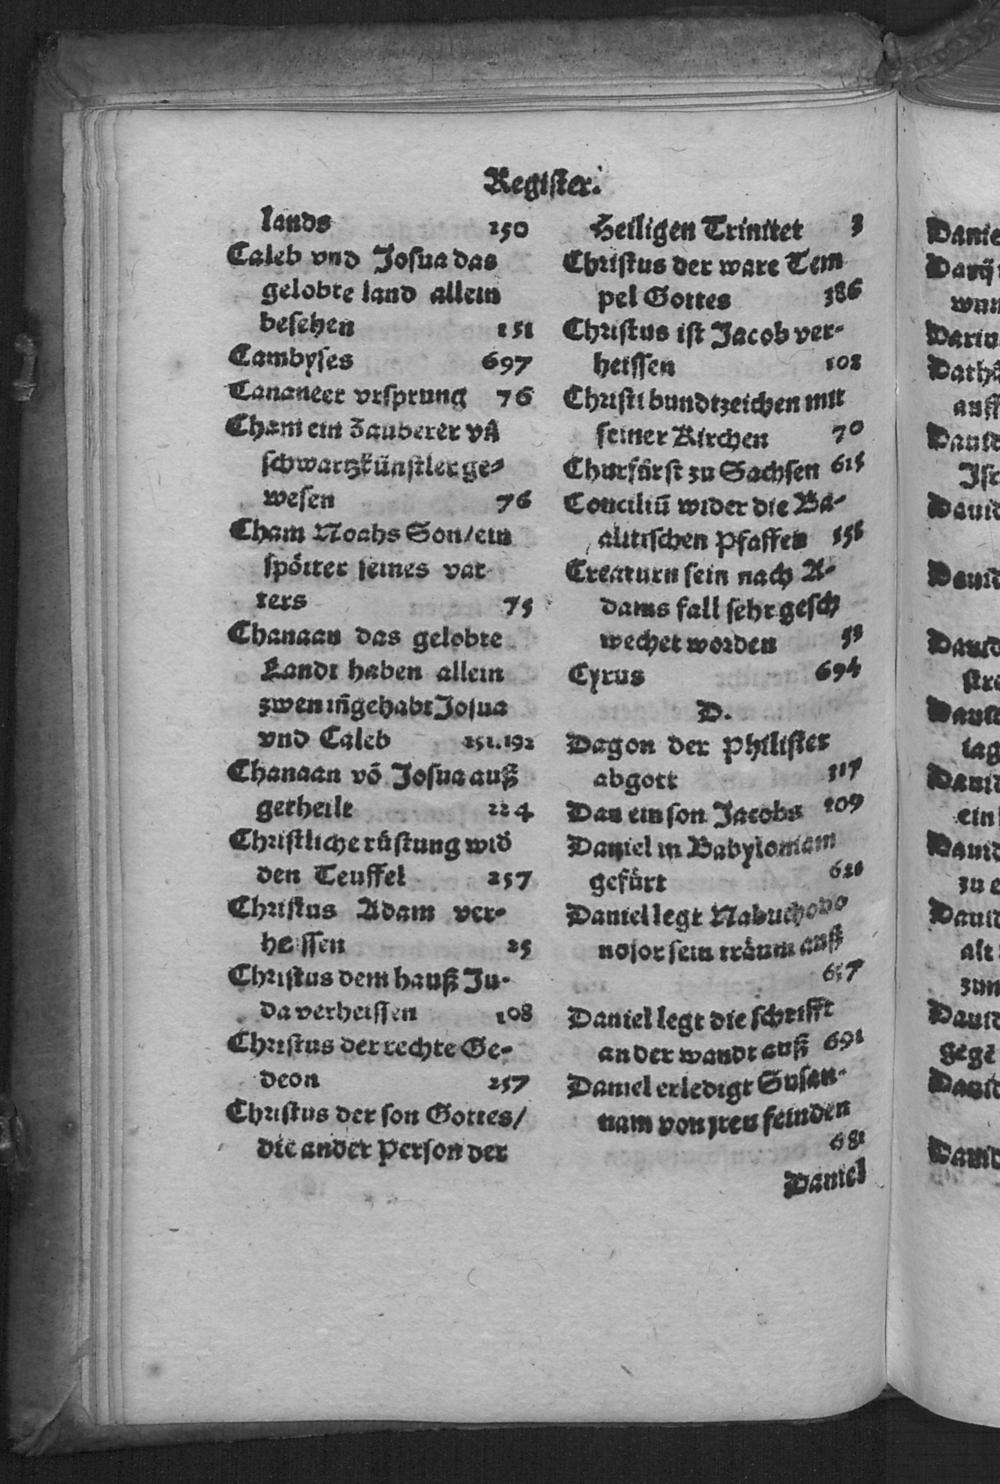 Register.
lands 250
Caleb vnd Josua das
gelobte land allein
besehen 151
Cambyses 697
Cananeer vrsprung 76
Cham ein Zauberer vñ
schwartzkünstler ge⸗
wesen 76
Cham Noahs Son/ein
spötter seines vat
ters 75
Chanaan das gelobte
Landt haben allein
zwen iñgehabt Josua
vnd Caleb 151.192
Chanaan võ Josua auß
getheilt 224
Christliche rüstung wid
den Teuffel 257
Christus Adam ver⸗
heissen 25
Christus dem hauß Ju⸗
da verheissen 108
Christus der rechte Ge⸗
deon 257
Christus der son Gottes/
die ander Person der
Heiligen Trinitet 3
Christus der ware Tem
pel Gottes 386
Christus ist Jacob ver⸗
heissen 102
Christi bundtzeichen mit
seiner Kirchen 70
Churfürst zu Sachsen 615
Conciliū wider die Ba⸗
alitischen Pfaffen
Creaturn sein nach A⸗
dams fall sehr gesch
wechet worden 52
Cyrus 694
D.
Dagon der Philister
abgott 317
Dan ein son Jacobs 109
Daniel in Babyloniam
gefürt 621
Daniel legt Nabuchodo
nosor sein träum auß
657
Daniel legt die schrifft
an der wandt auß 691
Daniel erledigt Susan⸗
nam von jren feinden
681
Daniel
Danie
wun
Dariu
auff
Dauid
Isr
Dauid
Dauid
Dauid
stre
Dauid
sag
Dauid
ein
Dauid
zu e
Dauid
alt
zum
Dauid
gegē
Dauid
Dauid